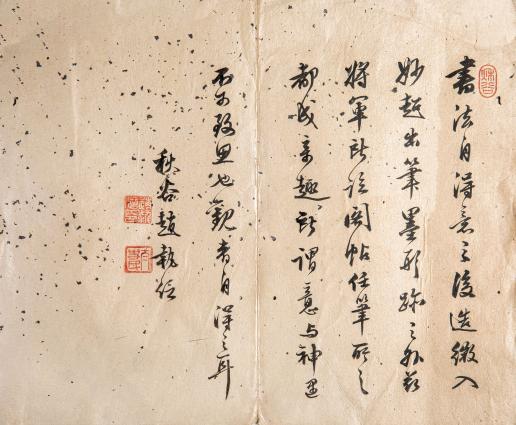 書法自得意之後造微入
妙超出筆墨形跡之外
將軍所臨閣帖任筆所之
都成意趣所謂意与神
不可致思也觀者自得之耳
秋谷